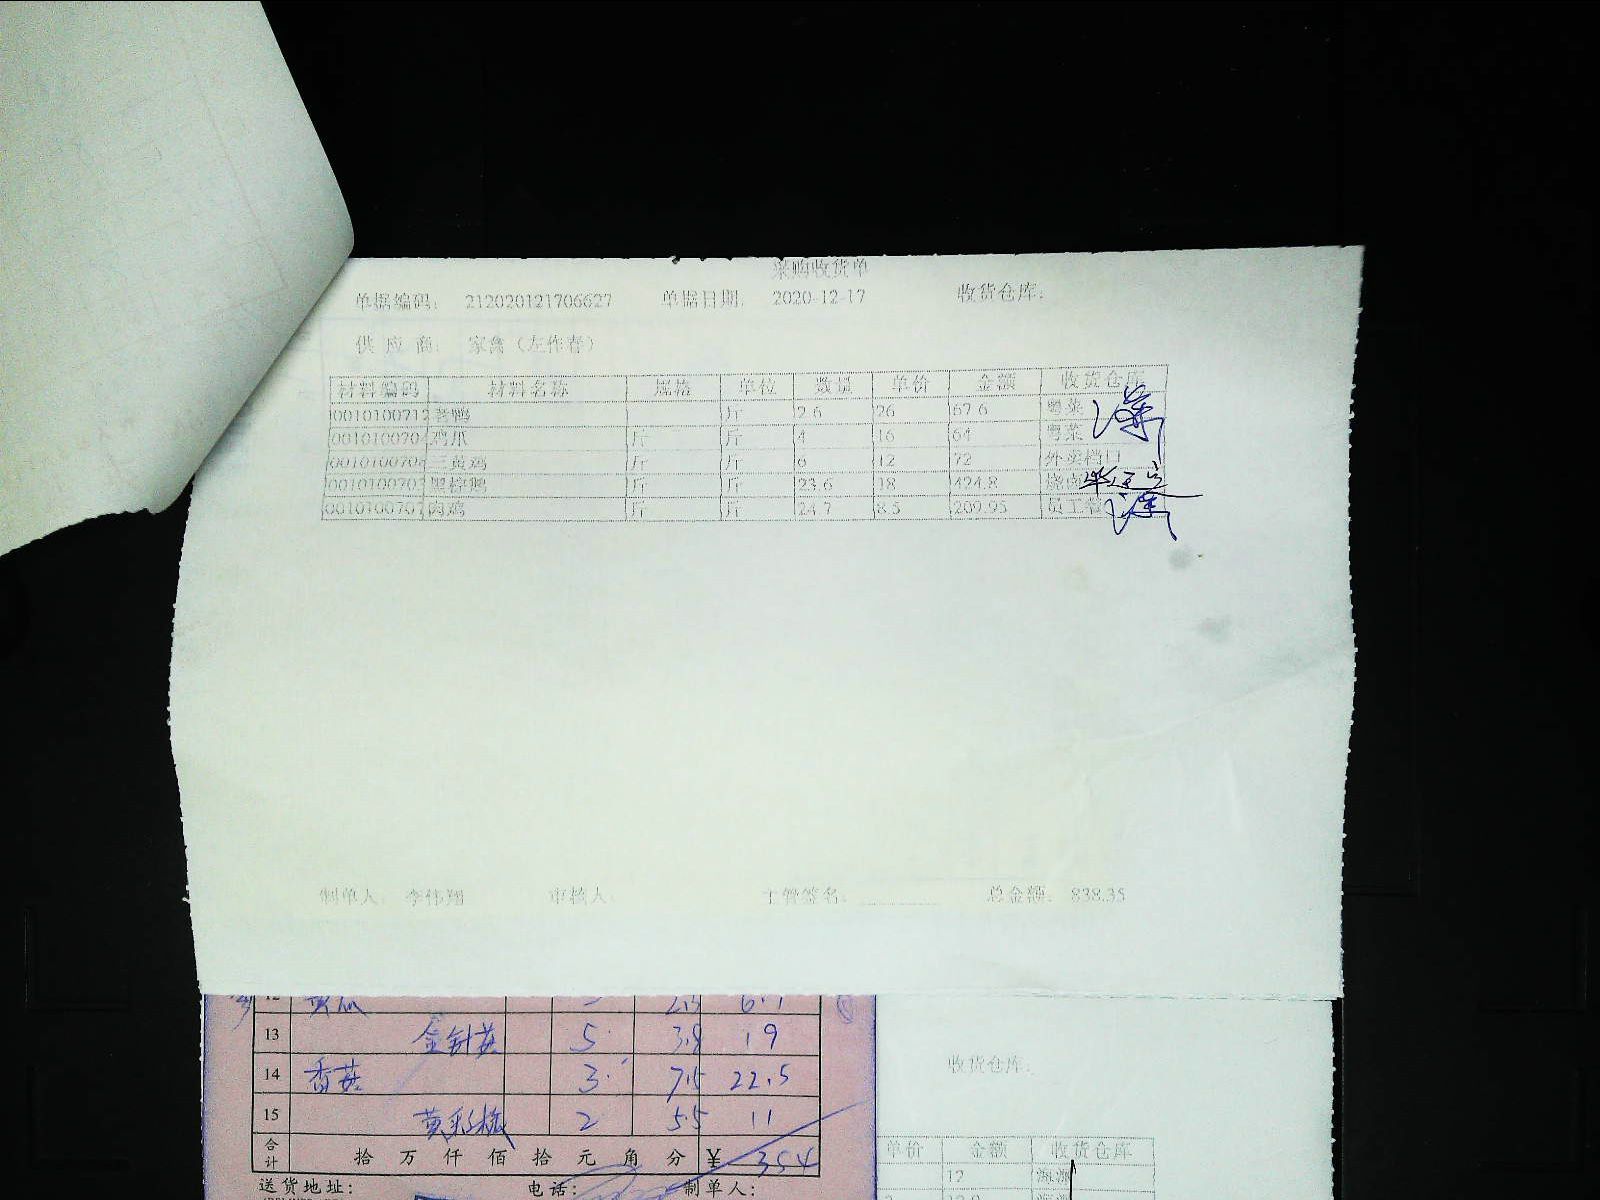 采购收货单
单据编码: 212020121706627 单据日期: 2020-12-17 收货仓库:
供应商: 家禽（左作春）
材料编码 材料名称 规格 单位 数量 单价 金额 收货仓库
0010100712 老鸭 斤 2.6 26 67.6 粤菜
001010070 鸡爪 斤 斤 4 16 64 粤菜
001010070 三黄鸡 斤 斤 6 12 72 外卖档口
001010070 黑棕鹅 斤 斤 23.6 18 424.8 烧卤
001010070 肉鸡 斤 斤 24.7 8.5 209.95 员工餐
制单人: 李伟翔 审核人: 主管签名: 总金额: 838.35
12 黄瓜
13 金针菇 5 3.8 19
14 香菇 3 7.5 22.5
15 黄彩椒 2 5.5 11
合计 拾 万 仟 佰 拾 元 角 分 ¥ 354
送货地址: 电话: 制单人:
收货仓库:
单价 金额 收货仓库
12